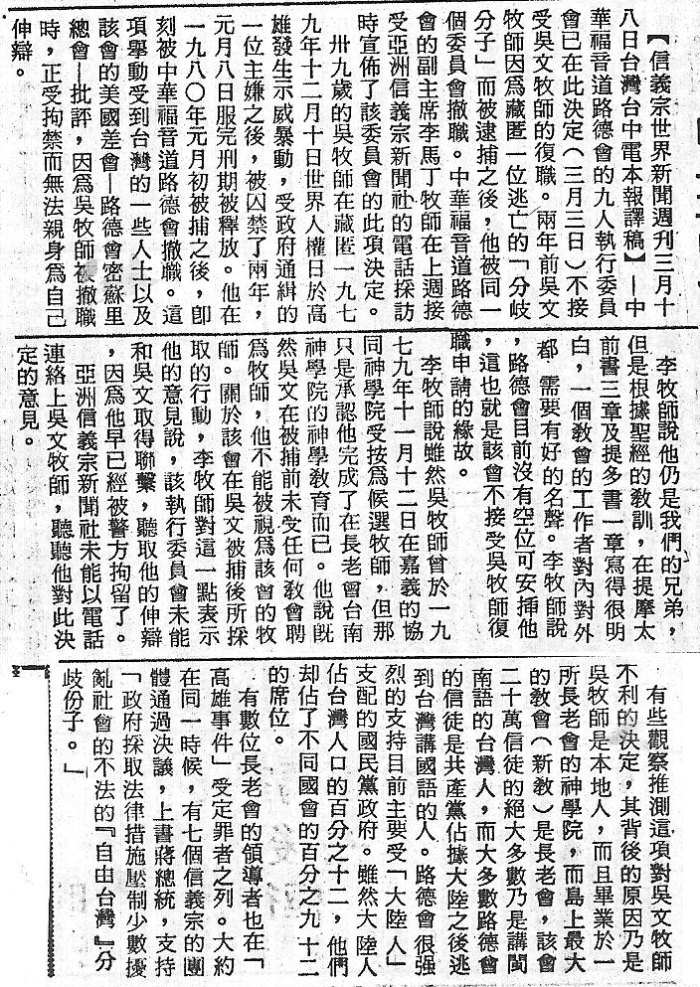 【信義宗世界新聞週刊三月十
八日台灣台中電本報譯稿】—中
華福音道路德會的九人執行委員
會已在此決定（三月三日）不接
受吳文牧師的復職。兩年前吳文
牧師因爲藏匿一位逃亡的「分歧
分子」而被逮捕之後，他被同一
個委員會撤職。中華福音道路德
會的副主席李馬丁牧師在上週接
受亞洲信義宗新聞社的電話採訪
時宣佈了該委員會的此項決定。
卅九歲的吳牧師在藏匿一九七
九年十二月十日世界人權日於高
雄發生示威暴動，受政府通緝的
一位主嫌之後，被囚禁了兩年，
元月八日服完刑期被釋放。他在
一九八〇年元月初被捕之後，卽
刻被中華福音道路德會撤職。這
項舉動受到台灣的一些人士以及
該會的美國差會—路德會密蘇里
總會—批評，因爲吳牧師被撤職
時，正受拘禁而無法親身爲自己
伸辯。
李牧師說他仍是我們的兄弟，
但是根據聖經的教訓，在提摩太
前書三章及提多書一章寫得很明
白，一個敎會的工作者對內對外
都 需要有好的名聲。李牧師說
，路德會目前沒有空位可安揷他
，這也就是該會不接受吳牧師復
職申請的緣故。
李牧師說雖然吳牧師曾於一九
七九年十一月十二日在嘉義的協
同神學院受按爲候選牧師，但那
只是承認他完成了在長老會台南
神學院的神學敎育而已。他說旣
然吳文在被捕前未受任何敎會聘
爲牧師，他不能被視爲該會的牧
師。關於該會在吳文被捕後所採
取的行動，李牧師對這一點表示
他的意見說，該執行委員會未能
和吳文取得聯繫，聽取他的伸辯
，因爲他早已經被警方拘留了。
亞洲信義宗新聞社未能以電話
連絡上吳文牧師，聽聽他對此決
定的意見。
有些觀察推測這項對吳文牧師
不利的決定，其背後的原因乃是
吳牧師是本地人，而且畢業於一
所長老會的神學院，而島上最大
的敎會（新敎）是長老會，該會
二十萬信徒的絕大多數乃是講閩
南語的台灣人，而大多數路德會
的信徒是共產黨佔據大陸之後逃
到台灣講國語的人。路德會很强
烈的支持目前主要受「大陸人」
支配的國民黨政府。雖然大陸人
佔台灣人口的百分之十二，他們
却佔了不同國會的百分之九十二
的席位。
有數位長老會的領導者也在「
高雄事件」受定罪者之列。大約
在同一時候，有七個信義宗的團
體通過決議，上書蔣總統，支持
「政府採取法律措施壓制少數擾
亂社會的不法的『自由台灣』分
歧份子。」